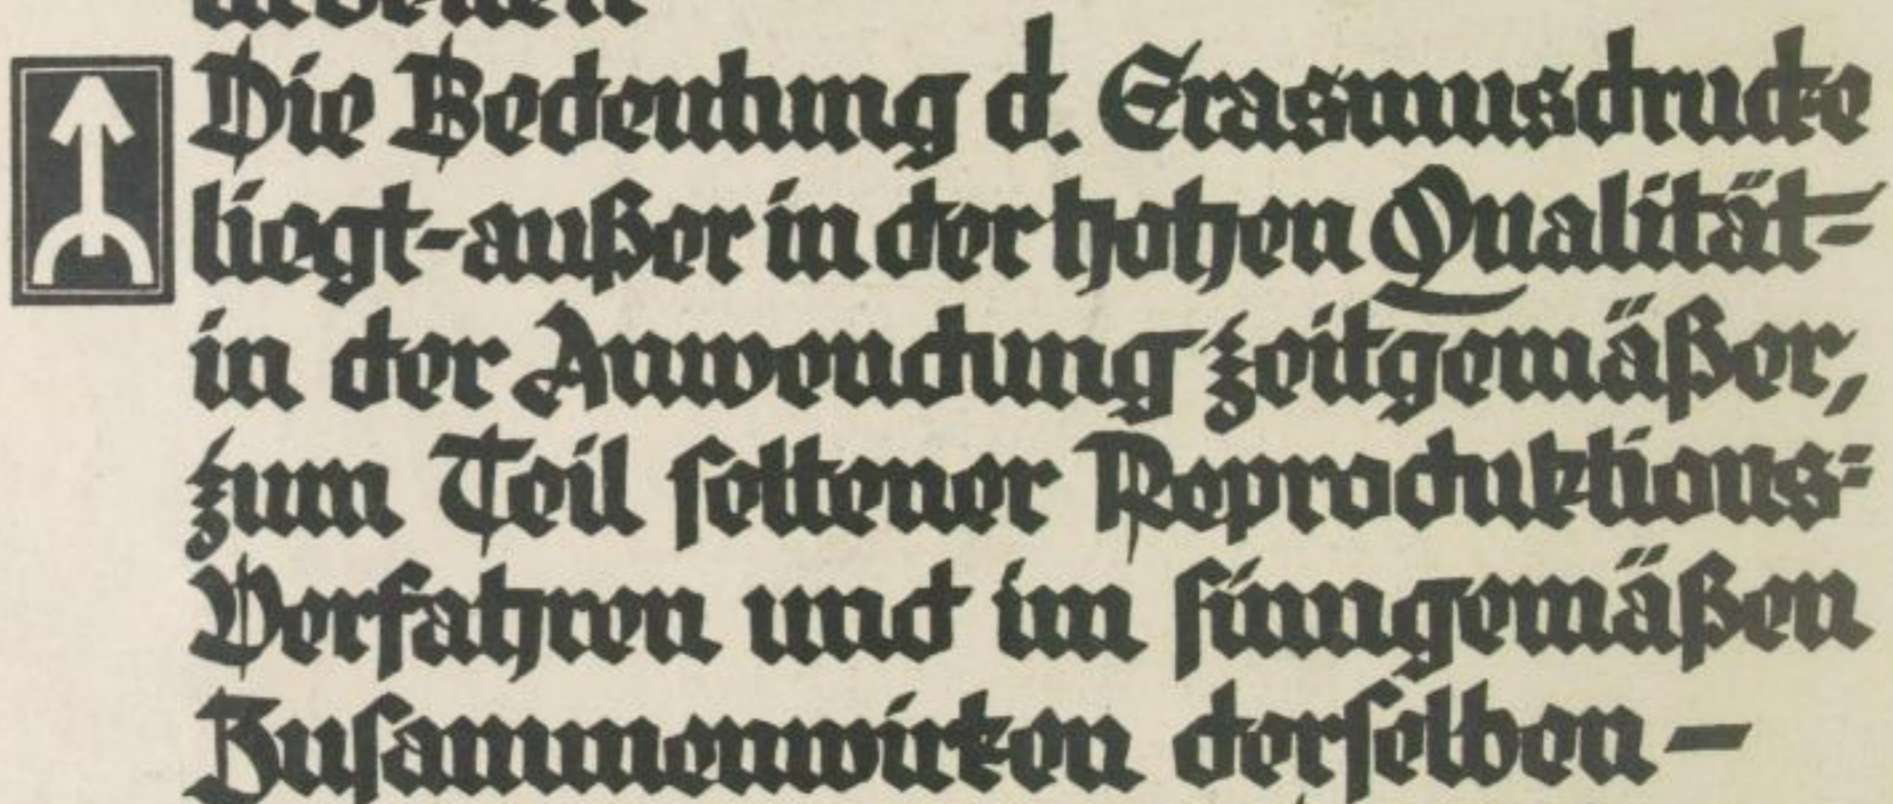 Die Bedeutung d. Erasmusdrucke
liegt-außer in der hohen Qualität-
in der Anwendung zeitgemäßer,
zum Teil seltener Reproduktions-
Verfahren und im sinngemäßen
Zusammenwirken derselben –